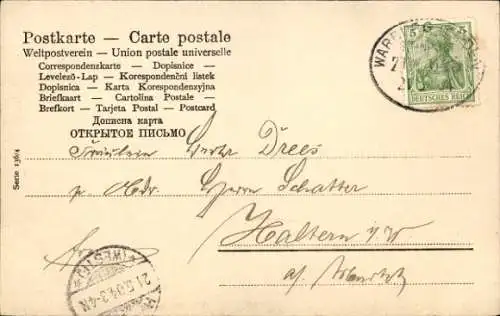 Postkarte — Carte postale
Weltpostverein — Union postale universelle
Correspondenzkarte — Dopisnice —
Levelező-Lap — Korespondenční listek
Dopisnica — Karta Korespondenzyjna
Briefkaart — Cartolina Postale —
Brefkort — Tarjeta Postal — Postcard
Дописна карта
ОТКРЫТОЕ ПИСЬМО
5
DEUTSCHES REICH
Serie 136/4
Fräulein Drees
Herrn Schatter
Haltern i/W
(WESTF)
21.5.04.3-4N.